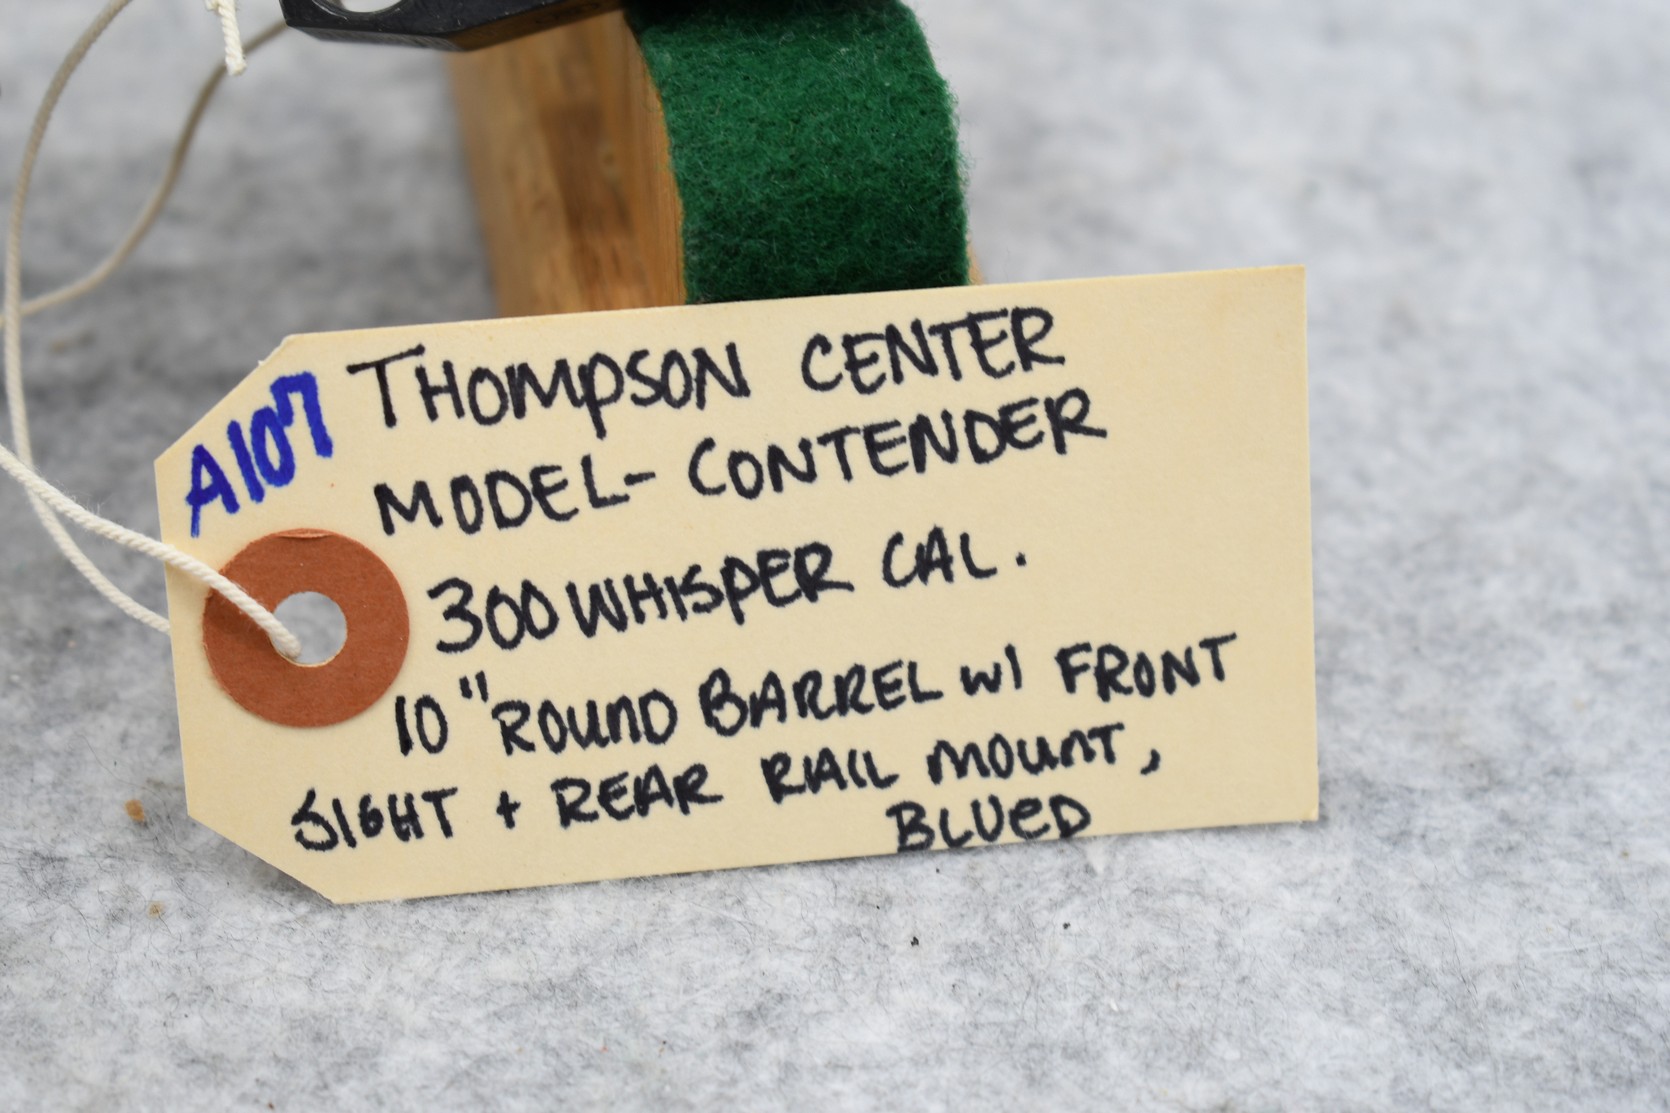 A107
THOMPSON CENTER
MODEL- CONTENDER
300 WHISPER CAL.
10" ROUND BARREL w/ FRONT
SIGHT + REAR RAIL MOUNT,
BLUED